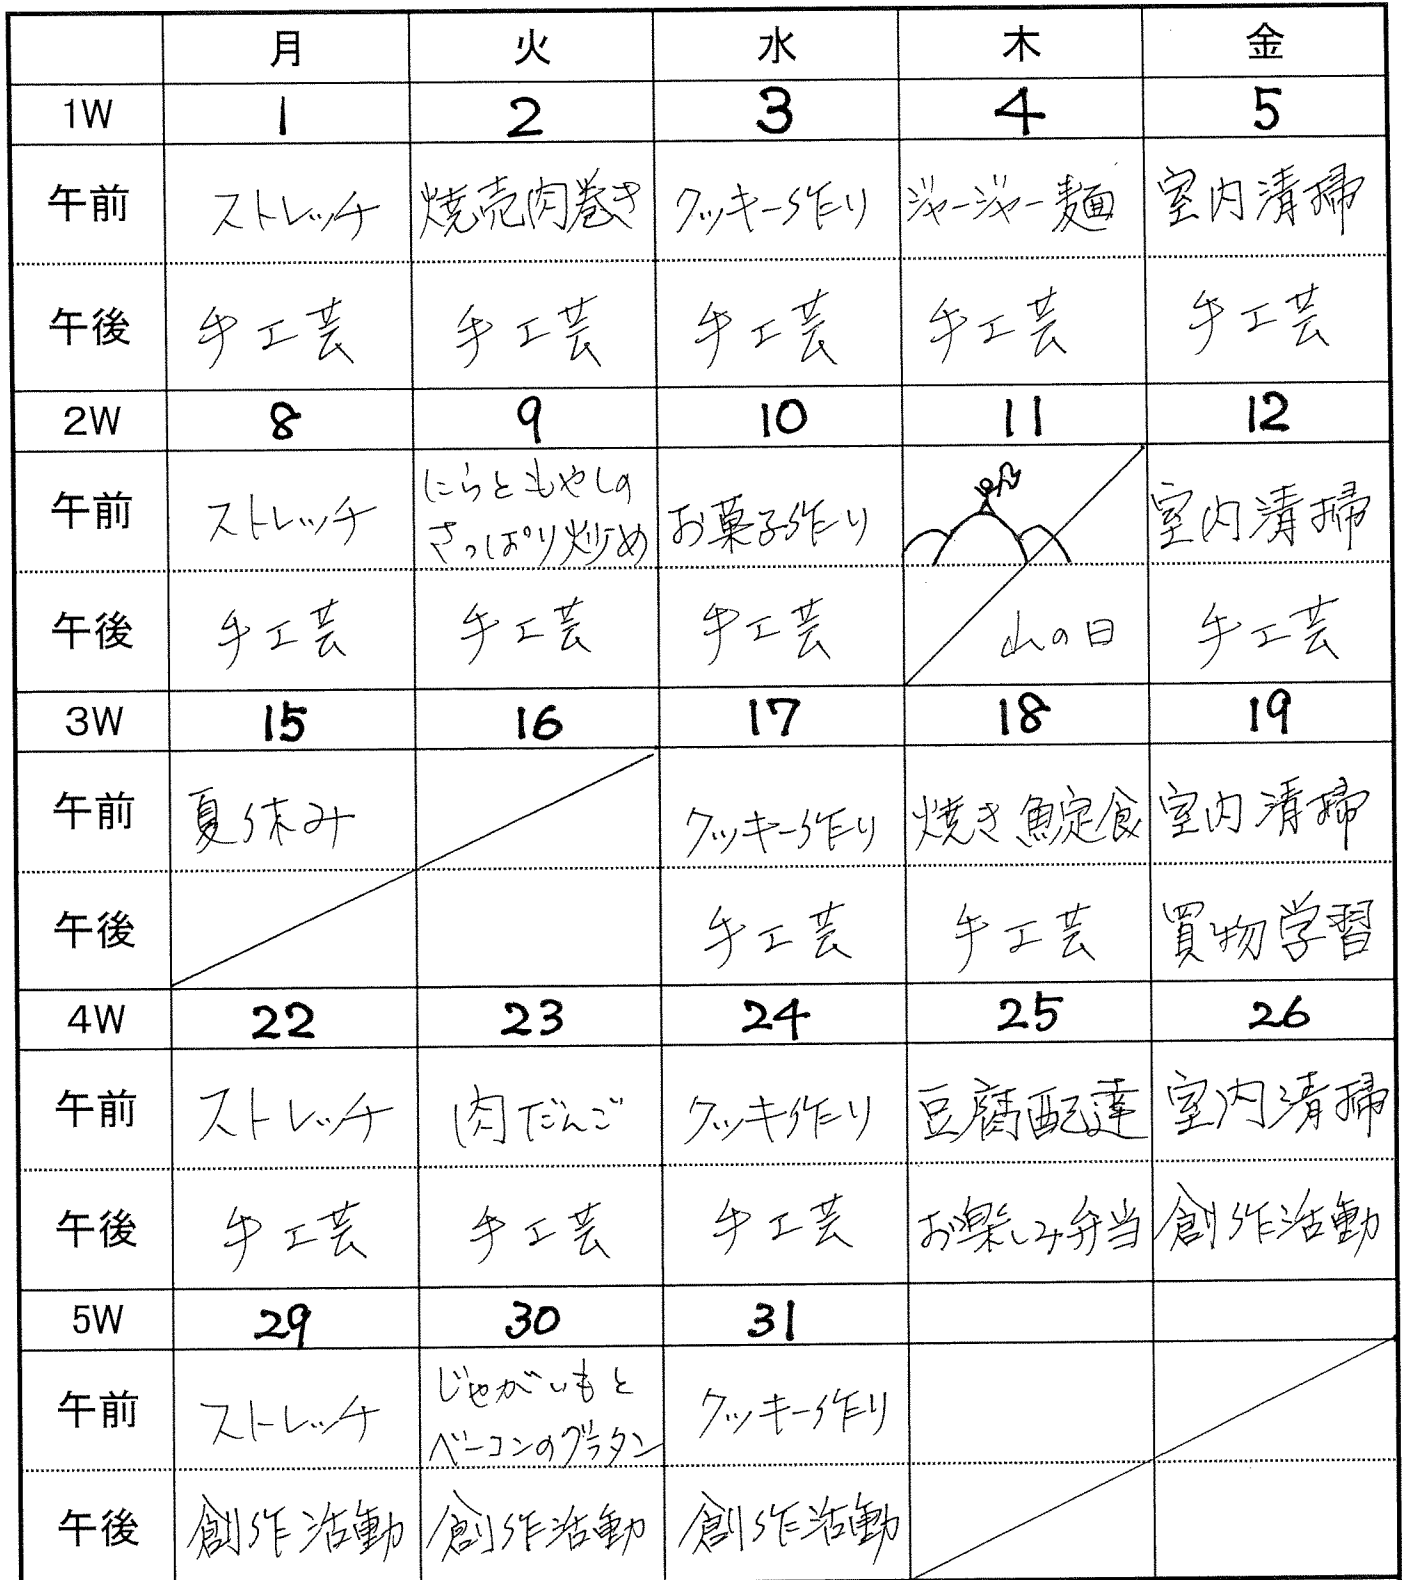 月 火 水 木 金
1W 1 2 3 4 5
午前 ストレッチ 焼売肉巻き クッキー作り ジャージャー麺 室内清掃
午後 手工芸 手工芸 手工芸 手工芸 手工芸
2W 8 9 10 11 12
午前 ストレッチ にらともやしの お菓子作り 室内清掃
さっぱり炒め
午後 手工芸 手工芸 手工芸 山の日 手工芸
3W 15 16 17 18 19
午前 夏休み クッキー作り 焼き魚定食 室内清掃
午後 手工芸 手工芸 買物学習
4W 22 23 24 25 26
午前 ストレッチ 肉だんご クッキ作り 豆腐配達 室内清掃
午後 手工芸 手工芸 手工芸 お楽しみ弁当 創作活動
5W 29 30 31
午前 ストレッチ じゃがいもと クッキー作り
ベーコンのグラタン
午後 創作活動 創作活動 創作活動